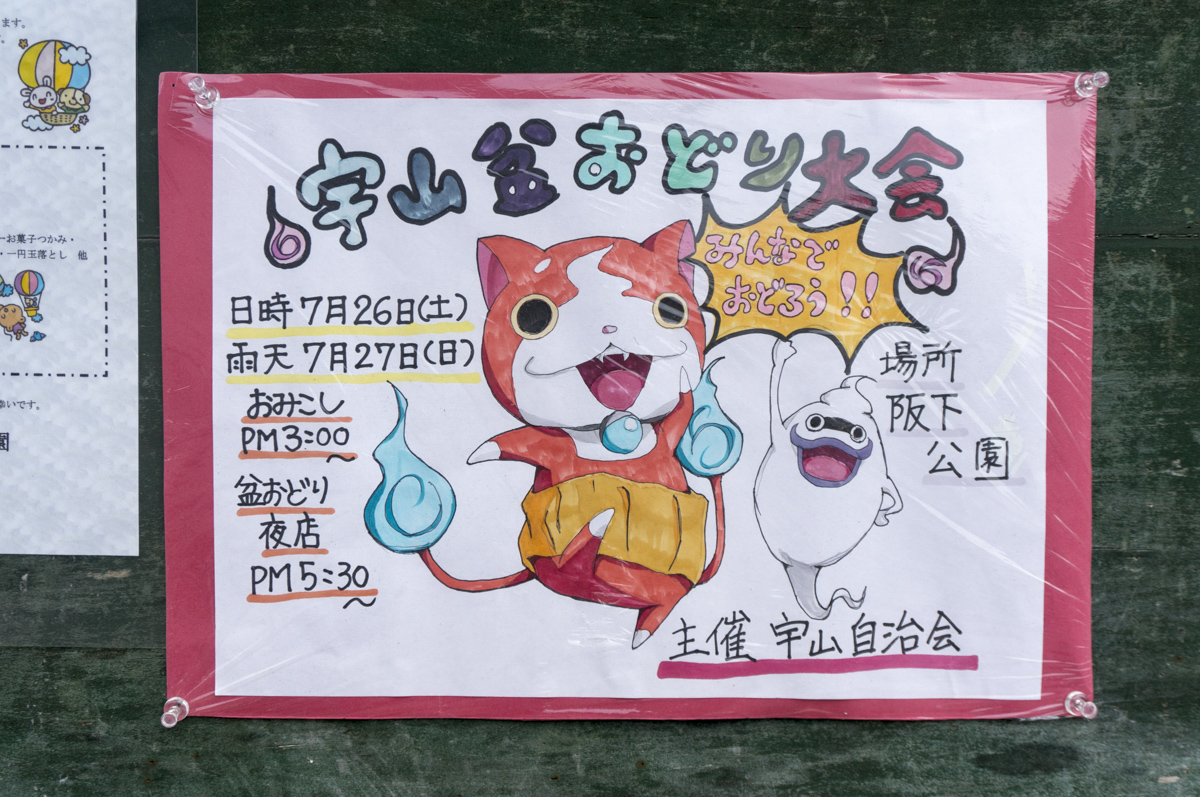 ます。
一お菓子つかみ・
・一円玉落とし 他
幸いです。
園
宇山盆おどり大会
みんなで
おどろう!!
日時 7月26日(土)
雨天 7月27日(日)
おみこし
PM3:00~
盆おどり
夜店
PM5:30~
場所
阪下
公園
主催 宇山自治会